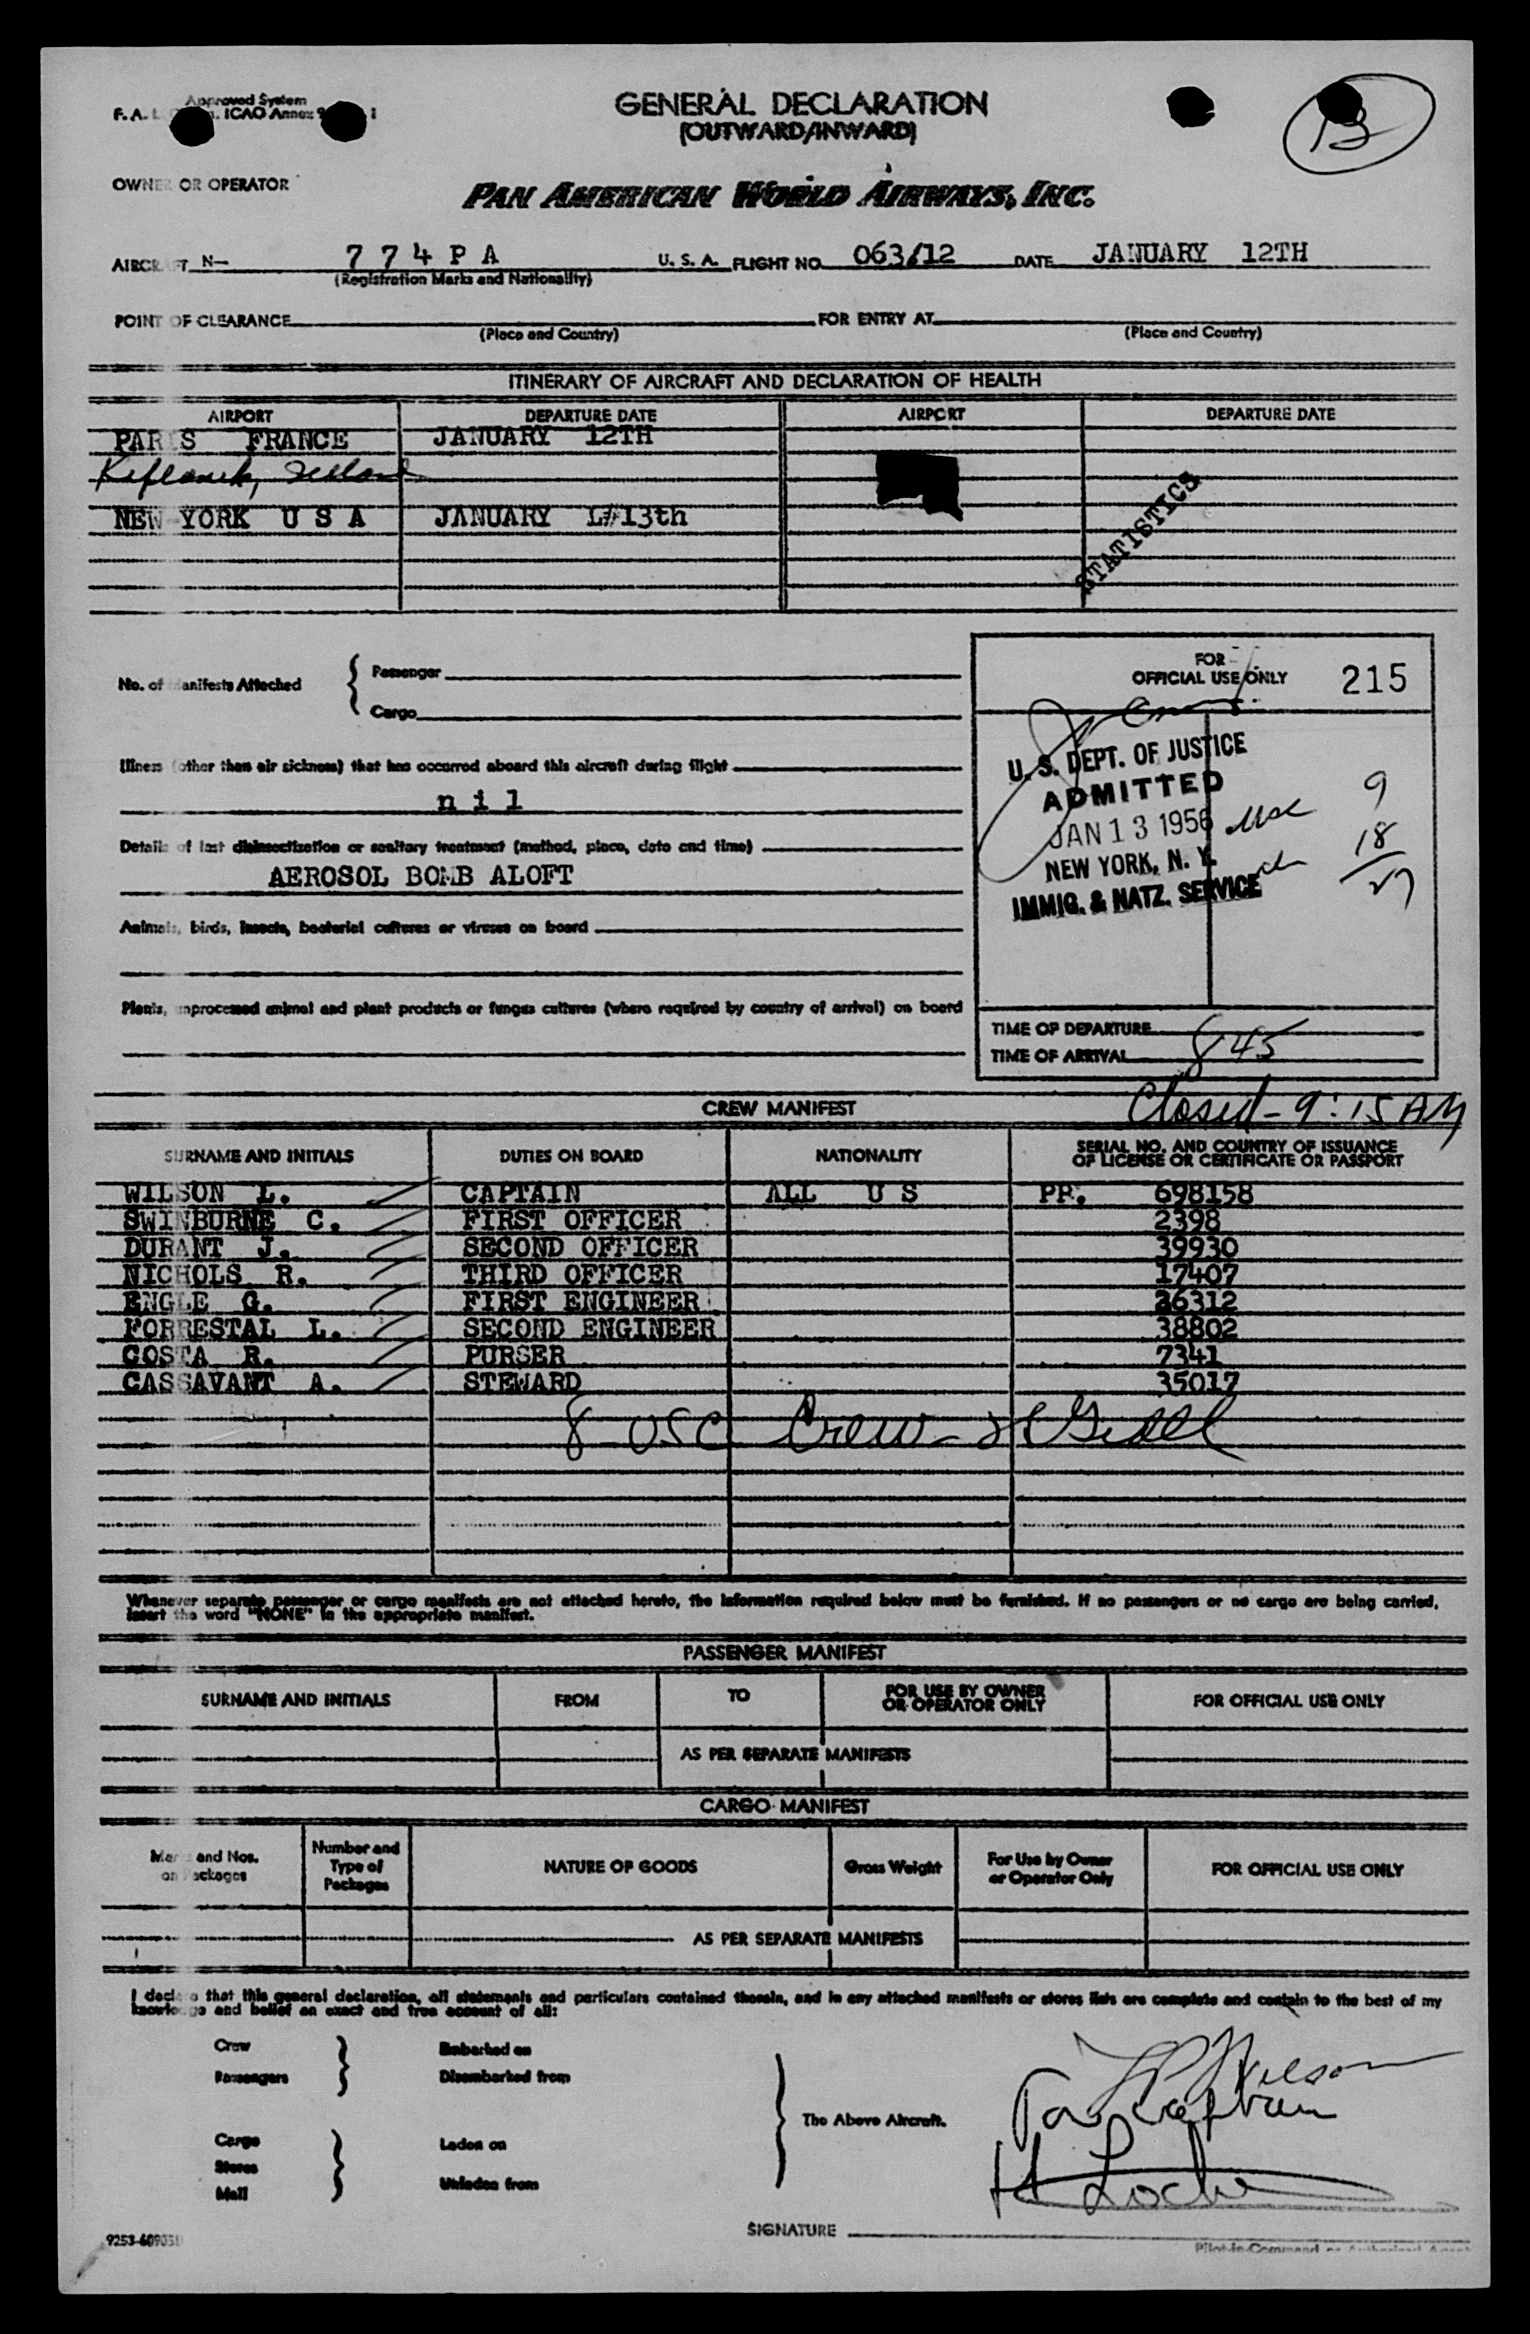 Approved System
F. A. L. ICAO Annex 9
GENERAL DECLARATION
(OUTWARD/INWARD)
B
OWNER OR OPERATOR
PAN AMERICAN WORLD AIRWAYS, INC.
AIRCRAFT N- 7 7 4 P A U. S. A. FLIGHT NO. 063/12 DATE JANUARY 12TH
(Registration Marks and Nationality)
POINT OF CLEARANCE FOR ENTRY AT
(Place and Country) (Place and Country)
ITINERARY OF AIRCRAFT AND DECLARATION OF HEALTH
AIRPORT DEPARTURE DATE AIRPORT DEPARTURE DATE
PARIS FRANCE JANUARY 12TH
Keflavik, Iceland
NEW YORK U S A JANUARY 13th
STATISTICS
FOR
OFFICIAL USE ONLY 215
No. of Manifests Attached
Passenger
Cargo
U. S. DEPT. OF JUSTICE
ADMITTED
JAN 13 1956
NEW YORK, N. Y.
IMMIG. & NATZ. SERVICE
9
18
27
Illness (other than air sickness) that has occurred aboard this aircraft during flight
n i l
Details of last disinsectization or sanitary treatment (method, place, date and time)
AEROSOL BOMB ALOFT
Animals, birds, insects, bacterial cultures or viruses on board
Plants, unprocessed animal and plant products or fungus cultures (where required by country of arrival) on board
TIME OF DEPARTURE
TIME OF ARRIVAL 845
CREW MANIFEST Closed - 9:15 AM
SURNAME AND INITIALS DUTIES ON BOARD NATIONALITY SERIAL NO. AND COUNTRY OF ISSUANCE
OF LICENSE OR CERTIFICATE OR PASSPORT
WILSON L. CAPTAIN ALL U S PP. 698158
SWINBURNE C. FIRST OFFICER 2398
DURANT J. SECOND OFFICER 39930
NICHOLS R. THIRD OFFICER 17407
ENGLE G. FIRST ENGINEER 36312
FORRESTAL L. SECOND ENGINEER 38802
COSTA R. PURSER 7341
CASSAVANT A. STEWARD 35017
8 USC Crew
Whenever separate passenger or cargo manifests are not attached hereto, the information required below must be furnished. If no passengers or no cargo are being carried,
insert the word "NONE" in the appropriate manifest.
PASSENGER MANIFEST
SURNAME AND INITIALS FROM TO FOR USE BY OWNER
OR OPERATOR ONLY FOR OFFICIAL USE ONLY
AS PER SEPARATE MANIFESTS
CARGO MANIFEST
Marks and Nos.
on Packages
Number and
Type of
Packages
NATURE OF GOODS Gross Weight
For Use by Owner
or Operator Only
FOR OFFICIAL USE ONLY
AS PER SEPARATE MANIFESTS
I declare that this general declaration, all statements and particulars contained therein, and in any attached manifests or stores lists are complete and contain to the best of my
knowledge and belief an exact and true account of all:
Crew Embarked on
Passengers Disembarked from
The Above Aircraft.
Cargo Laden on
Stores
Mail Unladen from
Wilson
SIGNATURE
Pilot-in-Command or Authorized Agent